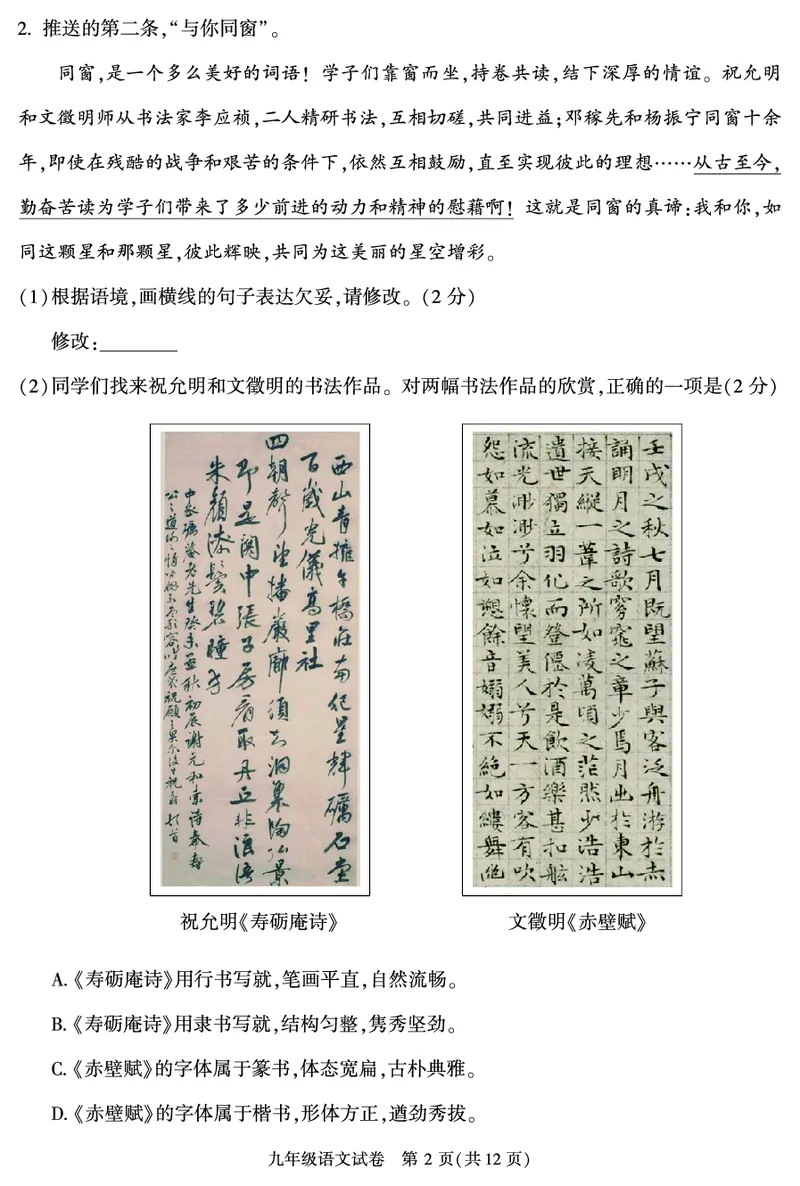 2. 推送的第二条,“与你同窗”。
同窗,是一个多么美好的词语！学子们靠窗而坐,持卷共读,结下深厚的情谊。祝允明
和文徵明师从书法家李应祯,二人精研书法,互相切磋,共同进益;邓稼先和杨振宁同窗十余
年,即使在残酷的战争和艰苦的条件下,依然互相鼓励,直至实现彼此的理想……从古至今,
勤奋苦读为学子们带来了多少前进的动力和精神的慰藉啊！这就是同窗的真谛:我和你,如
同这颗星和那颗星,彼此辉映,共同为这美丽的星空增彩。
(1)根据语境,画横线的句子表达欠妥,请修改。(2 分)
修改:________
(2)同学们找来祝允明和文徵明的书法作品。对两幅书法作品的欣赏,正确的一项是(2 分)
西山青擁午橋莊南紀星輝礪石堂
百歲光儀高里社
四朝聲望播巖廊須知洞裏陶弘景
即是關中張子房看取丹丘非浪語
朱顏漆鬢碧瞳方
壬戌之秋七月既望蘇子與客泛舟游於赤
誦明月之詩歌窈窕之章少焉月出於東山
接天縱一葦之所如凌萬頃之茫然浩浩
遺世獨立羽化而登僊於是飲酒樂甚扣舷
流光渺渺兮余懷望美人兮天一方客有吹
怨如慕如泣如愬餘音嫋嫋不絕如縷舞
祝允明《寿砺庵诗》
文徵明《赤壁赋》
A.《寿砺庵诗》用行书写就,笔画平直,自然流畅。
B.《寿砺庵诗》用隶书写就,结构匀整,隽秀坚劲。
C.《赤壁赋》的字体属于篆书,体态宽扁,古朴典雅。
D.《赤壁赋》的字体属于楷书,形体方正,遒劲秀拔。
九年级语文试卷 第 2 页(共 12 页)